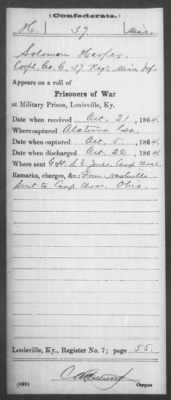 (Confederate.)
H. 37 Miss.
Solomon Harper
Corpl. Co. C, 37 Reg't, Miss. Inf.
Appears on a roll of
Prisoners of War
at Military Prison, Louisville, Ky.
Date when received Oct. 21, 1864.
Where captured Alatoona Ga.
Date when captured Oct. 5, 1864
Date when discharged Oct. 22, 1864
Where sent Capt. S. E. Jones Camp Chase
Remarks, charges, &c.: From Nashville
Sent to Camp Chase, Ohio.
Louisville, Ky., Register No. 7; page 55.
Copyist